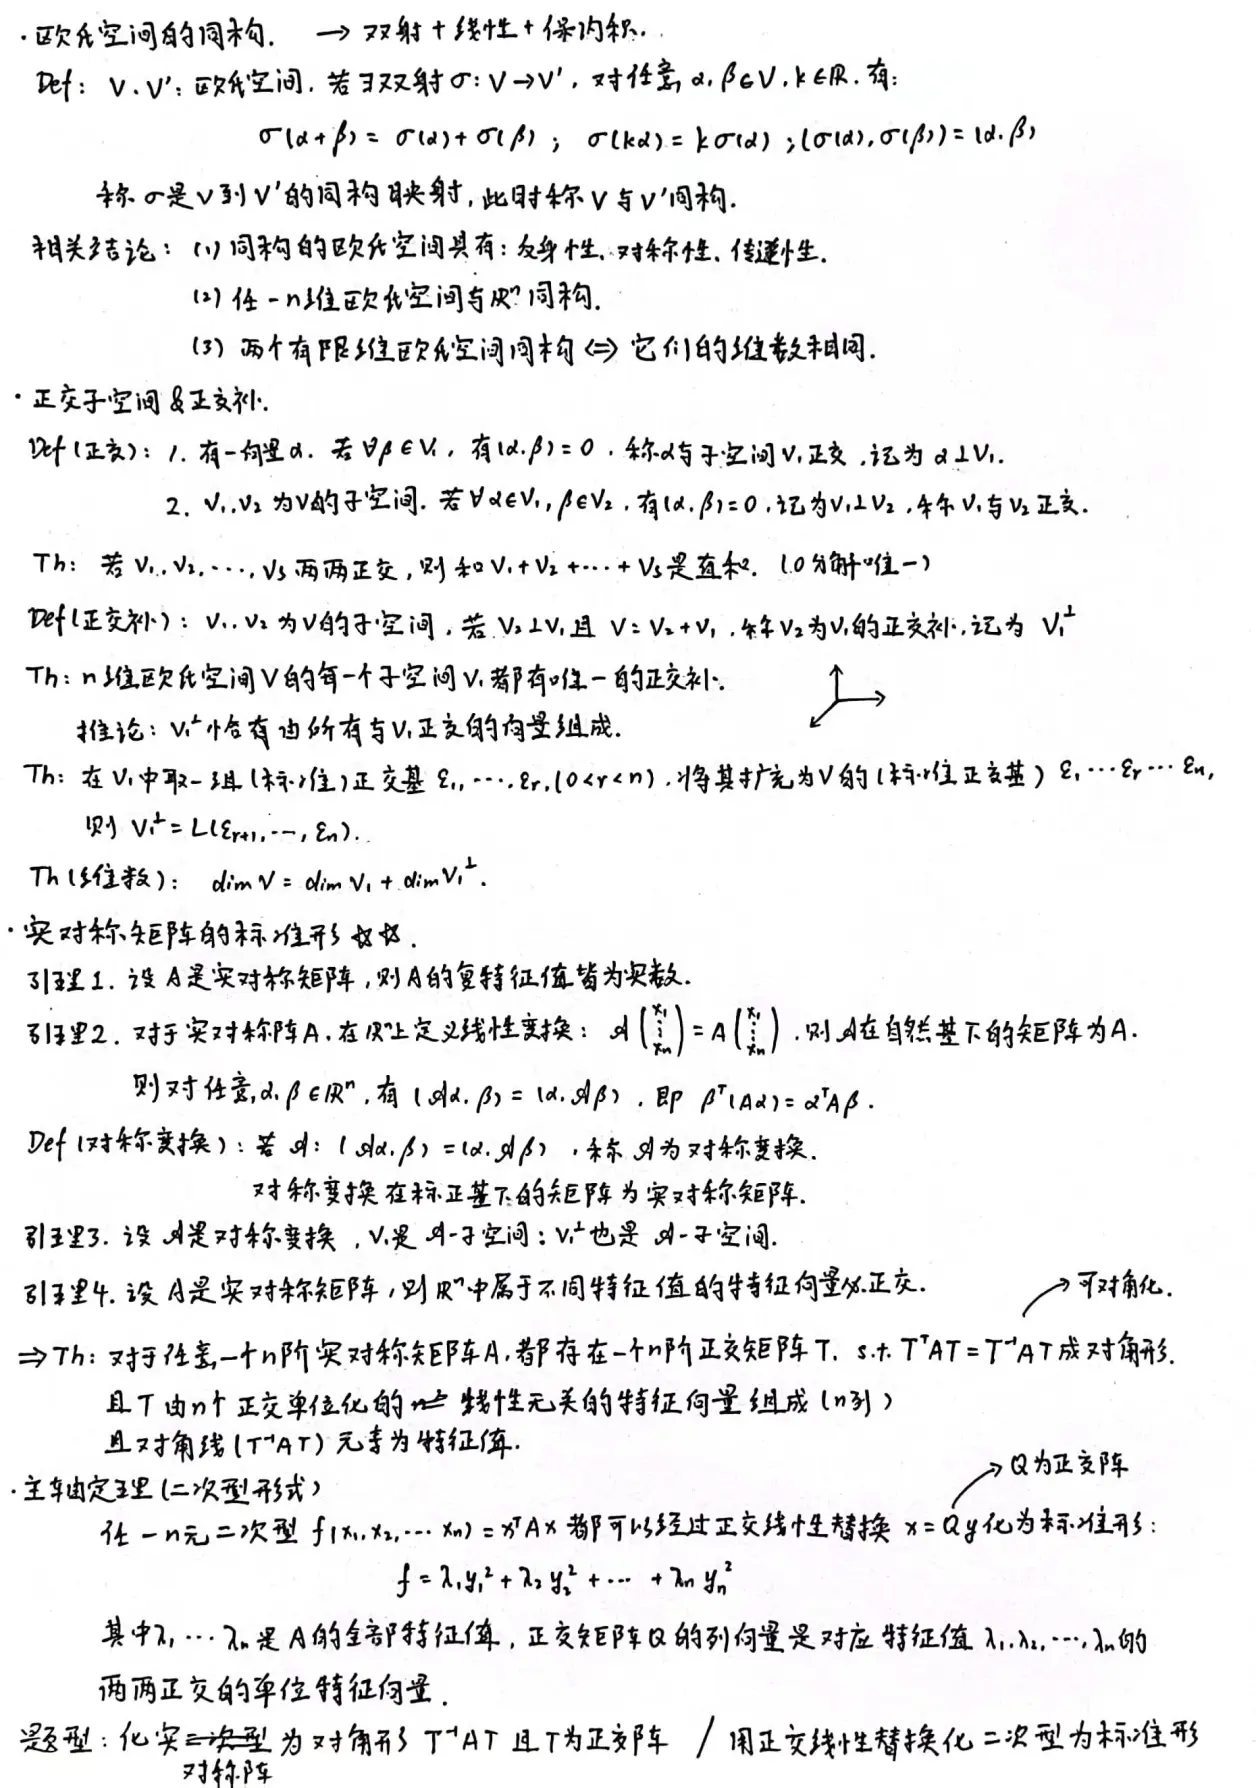 ·欧氏空间的同构. → 双射+线性+保内积.
Def: V、V': 欧氏空间. 若∃双射σ: V→V', 对任意 α,β∈V, k∈R. 有:
σ(α+β)=σ(α)+σ(β); σ(kα)=kσ(α); (σ(α),σ(β))=(α.β)
称σ是V到V'的同构映射,此时称V与V'同构.
相关结论: (1) 同构的欧氏空间具有: 反身性、对称性、传递性.
(2) 任一n维欧氏空间与Rⁿ同构.
(3) 两个有限维欧氏空间同构⇔它们的维数相同.
·正交子空间&正交补.
Def(正交): 1. 有一向量α. 若∀β∈V₁, 有(α.β)=0. 称α与子空间V₁正交,记为α⊥V₁.
2. V₁.V₂为V的子空间. 若∀α∈V₁,β∈V₂,有(α.β)=0.记为V₁⊥V₂,称V₁与V₂正交.
Th: 若V₁.V₂.…,Vs两两正交,则和V₁+V₂+…+Vs是直和. (0分解唯一)
Def(正交补): V₁.V₂为V的子空间. 若V₂⊥V₁且V=V₂+V₁,称V₂为V₁的正交补.记为V₁^⊥
Th: n维欧氏空间V的每一个子空间V₁都有唯一的正交补.
推论: V₁^⊥恰有由所有与V₁正交的向量组成.
Th: 在V₁中取一组(标准)正交基ε₁,…,εr,(0<r<n).将其扩充为V的(标准正交基) ε₁…εr…εn,
则V₁^⊥=L(εr+1,…,εn).
Th(维数): dimV=dimV₁+dimV₁^⊥.
·实对称矩阵的标准形☆☆.
引理1. 设A是实对称矩阵,则A的复特征值皆为实数.
引理2. 对于实对称阵A.在Rⁿ上定义线性变换: 𝒜(x₁⋮xn)=A(x₁⋮xn).则𝒜在自然基下的矩阵为A.
则对任意α,β∈Rⁿ,有(𝒜α.β)=(α.𝒜β).即βᵀ(Aα)=αᵀAβ.
Def(对称变换): 若𝒜: (𝒜α.β)=(α.𝒜β),称𝒜为对称变换.
对称变换在标正基下的矩阵为实对称矩阵.
引理3. 设𝒜是对称变换,V₁是𝒜-子空间; V₁^⊥也是𝒜-子空间.
引理4. 设A是实对称矩阵,则Rⁿ中属于不同特征值的特征向量必正交.
→可对角化.
⇒Th: 对于任意一个n阶实对称矩阵A,都存在一个n阶正交矩阵T. s.t. TᵀAT=T⁻¹AT成对角形.
且T由n个正交单位化的线性无关的特征向量组成(n列)
且对角线(T⁻¹AT)元素为特征值.
·主轴定理(二次型形式)
→Q为正交阵
任一n元二次型f(x₁,x₂,…xn)=xᵀAx都可以经过正交线性替换x=Qy化为标准形:
f=λ₁y₁²+λ₂y₂²+…+λnyn²
其中λ₁…λn是A的全部特征值,正交矩阵Q的列向量是对应特征值λ₁.λ₂.…,λn的
两两正交的单位特征向量.
题型: 化实二次型为对角形T⁻¹AT且T为正交阵 / 用正交线性替换化二次型为标准形
对称阵